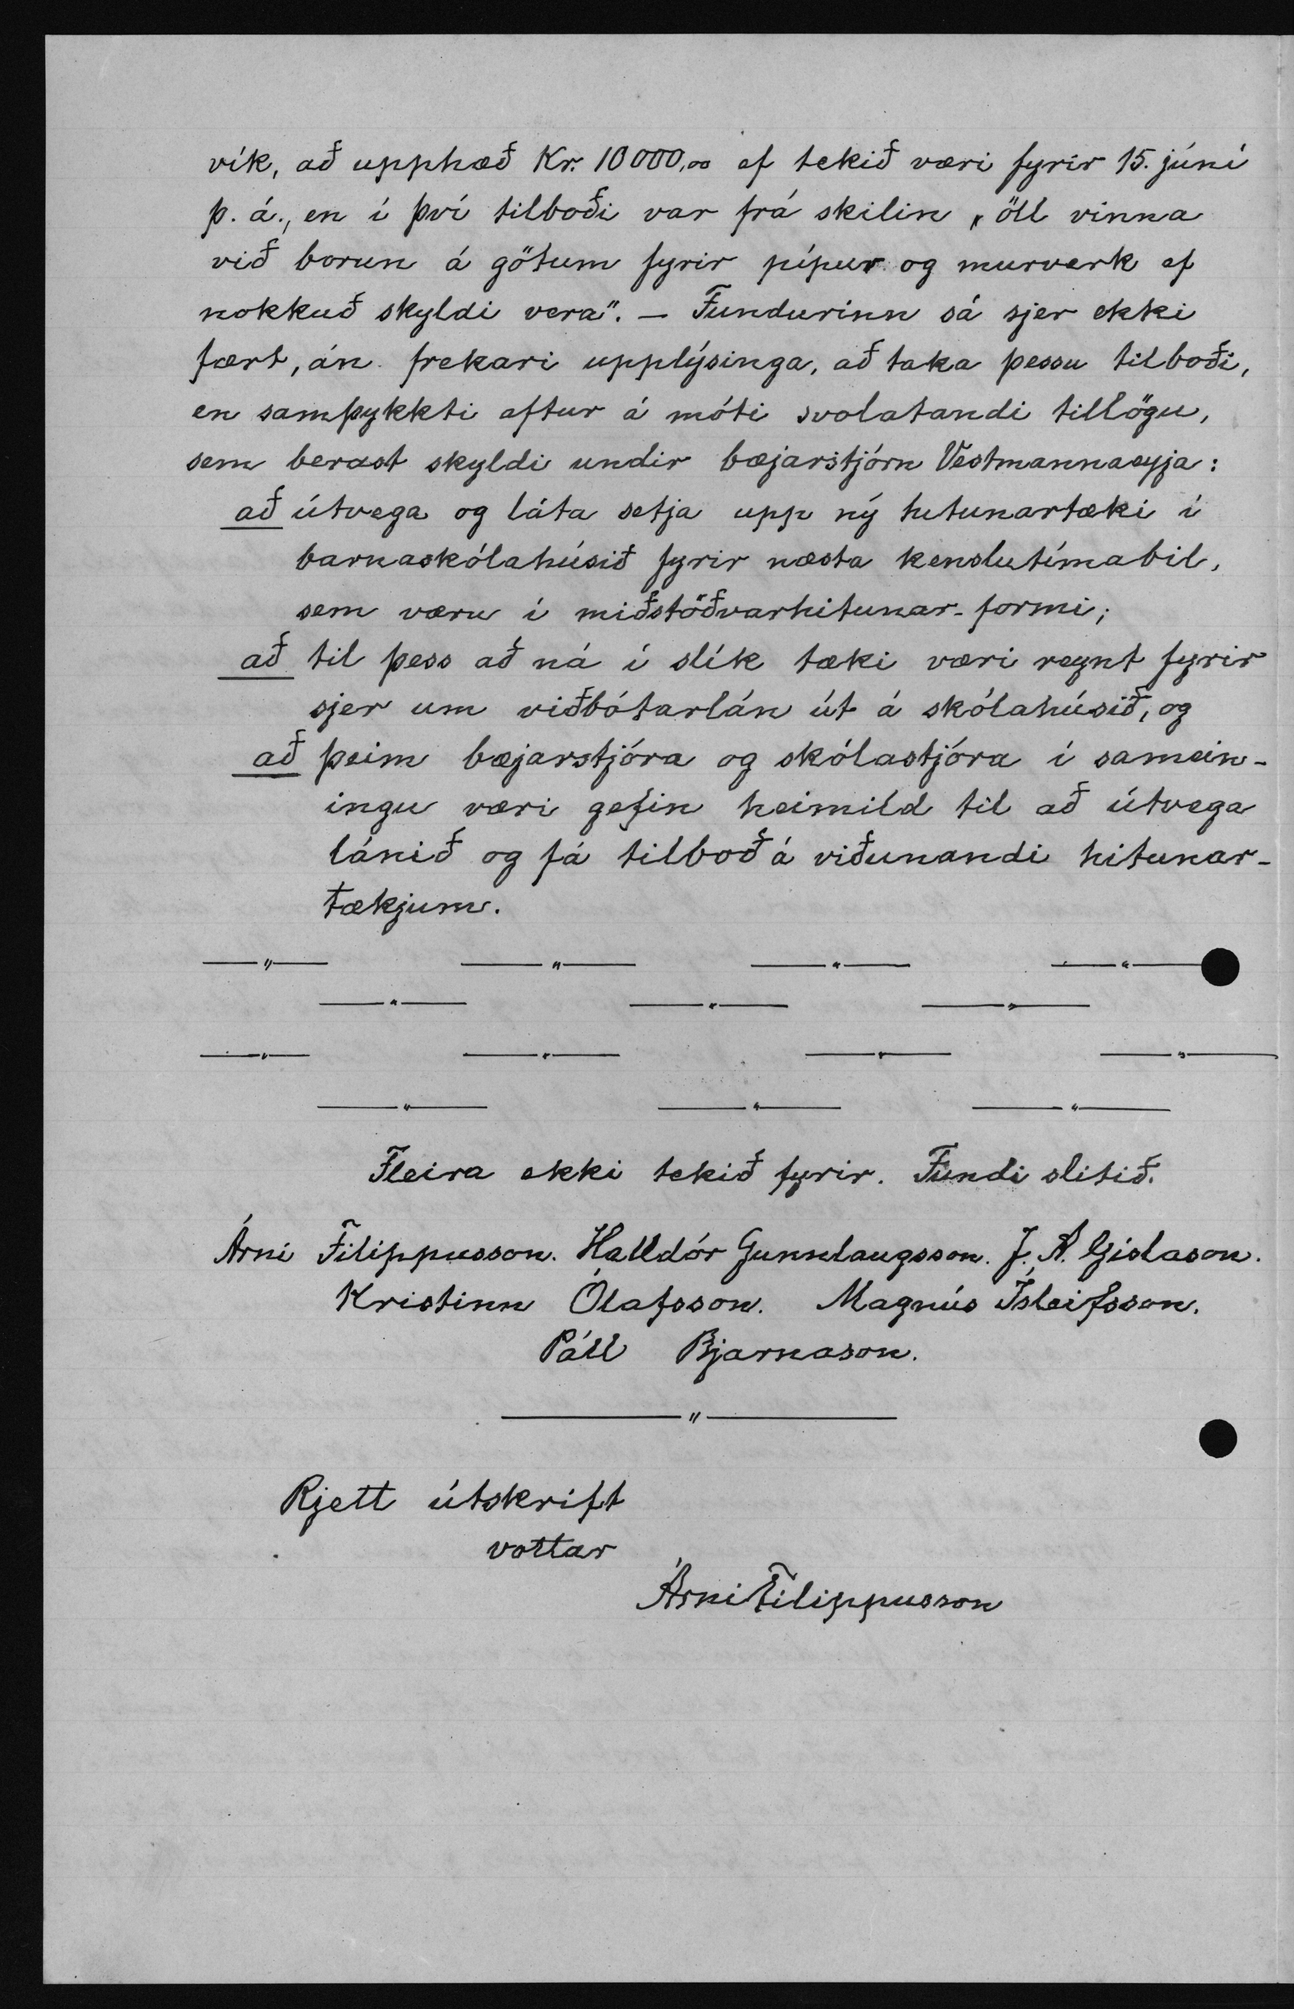 vík, að upphæð Kr. 10000,00 ef tekið væri fyrir 15. júní
þ. á., en í því tilboði var frá skilin „öll vinna
við borun á götum fyrir pípur og murverk ef
nokkuð skyldi vera“. — Fundurinn sá sjer ekki
fært, án frekari upplýsinga, að taka þessu tilboði,
en samþykkti aftur á móti svolatandi tillögu,
sem berast skyldi undir bæjarstjórn Vestmannaeyja:
að útvega og láta setja upp ný hitunartæki í
barnaskólahúsið fyrir næsta kenslutímabil,
sem væru í miðstöðvarhitunar-formi;
að til þess að ná í slík tæki væri reynt fyrir
sjer um viðbótarlán út á skólahúsið, og
að þeim bæjarstjóra og skólastjóra í samein-
ingu væri gefin heimild til að útvega
lánið og fá tilboð á viðunandi hitunar-
tækjum.
—„— —„— —„— —„—
—„— —„— —„—
—„— —„— —„— —„—
—„— —„— —„—
Fleira ekki tekið fyrir. Fundi slitið.
Árni Filippusson. Halldór Gunnlaugsson. J. Á. Gíslason.
Kristinn Ólafsson. Magnús Ísleifsson.
Páll Bjarnason.
—„—
Rjett útskrift
vottar
Árni Filippusson